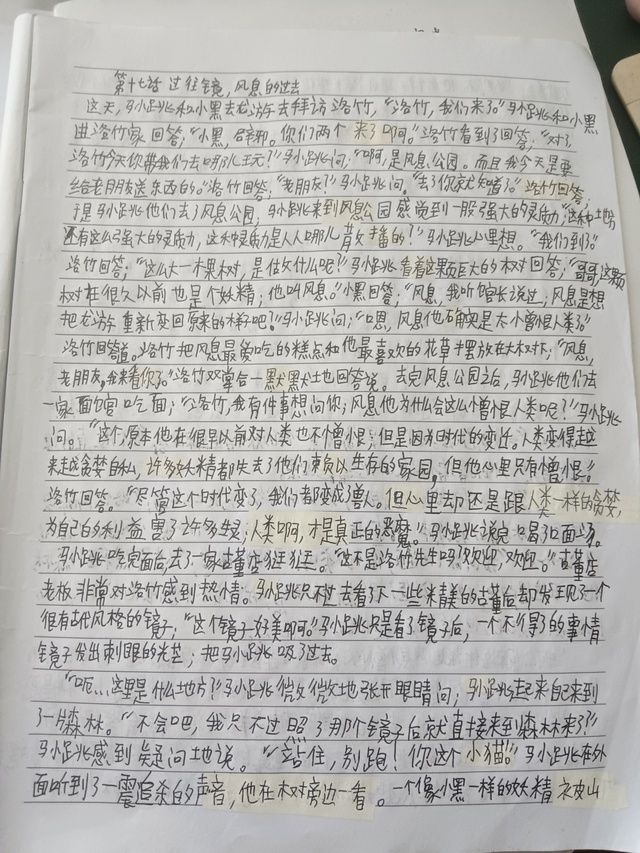 第十七话 过往镜,风息的过去
这天,马小跳和小黑去龙游去拜访洛竹,“洛竹,我们来了。”马小跳和小黑
进洛竹家回答;“小黑,辟邪。你们两个来了啊。”洛竹看到了回答;“对了,
洛竹今天你带我们去哪儿玩?”马小跳问,“啊,是风息公园。而且我今天是要
给老朋友送东西的。”洛竹回答;“老朋友?”马小跳问。“去了你就知道了。”洛竹回答;
于是马小跳他们去了风息公园,马小跳来到风息公园感觉到一股强大的灵质力;“这种地方
还有这么强大的灵质力,这种灵质力是人人哪儿散播的?”马小跳心里想。“我们到了。”
洛竹回答;“这么大一棵树,是做什么呢?”马小跳看着这颗巨大的树回答;“哥哥,这颗
树在很久以前也是个妖精,他叫风息。”小黑回答;“风息,我听馆长说过;风息是想
把龙游重新变回原来的样子吧?”马小跳问;“嗯,风息他确实是大小憎恨人类。”
洛竹回答道。洛竹把风息最爱吃的糕点和他最喜欢的花草摆放在大树下;“风息,
老朋友,我来看你了。”洛竹双掌合一默默地回答说。去完风息公园之后,马小跳他们去
一家面馆吃面;“洛竹,我有件事想问你;风息他为什么会这么憎恨人类呢?”马小跳
问。“这个,原本他在很早以前对人类也不憎恨;但是因为时代的变迁。人类变得越
来越贪婪自私,许多妖精都失去了他们赖以生存的家园。但他心里只有憎恨。”
洛竹回答。“尽管这个时代变了,我们都变成了兽人。但心里却还是跟人类一样的贪婪,
为自己的利益害了许多生灵;人类啊,才是真正的恶魔。”马小跳说完喝了口面汤。
马小跳吃完面后,去了一家古董店逛逛。“这不是洛竹先生吗?欢迎,欢迎。”古董店
老板非常对洛竹感到热情。马小跳只不过去看了下一些精美的古董后却发现了一个
很有古代风格的镜子;“这个镜子好美啊。”马小跳只是看了镜子后,一个不得了的事情
镜子发出刺眼的光芒;把马小跳吸了过去。
“呃…这里是什么地方?”马小跳微微地张开眼睛问;马小跳起来自己来到
了一片森林。“不会吧,我只不过照了那个镜子后就直接来到森林来了?”
马小跳感到疑问地说。“站住,别跑!你这个小猫。”马小跳在外
面听到了一震追杀的声音,他在树旁边一看。一个像小黑一样的妖精被山